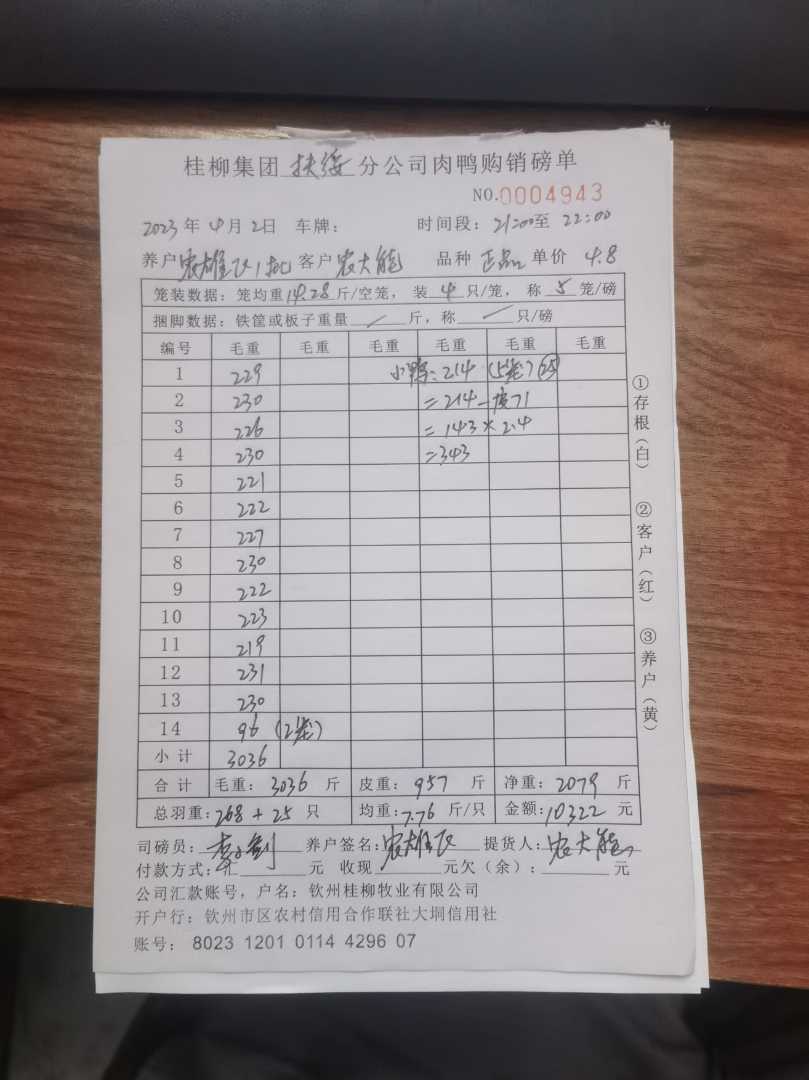 桂柳集团 扶绥 分公司肉鸭购销磅单
NO.0004943
2023年4月2日 车牌： 时间段：21:00至22:00
养户 农雄飞1批 客户 农大能 品种 正品 单价 4.8
笼装数据：笼均重14.28斤/空笼，装4只/笼，称5笼/磅
捆脚数据：铁筐或板子重量 / 斤，称 / 只/磅
编号 毛重 毛重 毛重 毛重 毛重 毛重
1 229 小鸭：214 (5笼) 25
2 230 =214-皮71
3 226 =143×2.4
4 230 =343
5 221
6 222
7 227
8 230
9 222
10 223
11 219
12 231
13 230
14 96 (2笼)
小计 3036
合计 毛重：3036斤 皮重：957斤 净重：2079斤
总羽重：268+25只 均重：7.76斤/只 金额：10322元
司磅员： 养户签名：农雄飞 提货人：农大能
付款方式：汇 元 收现 元欠（余）： 元
公司汇款账号，户名：钦州桂柳牧业有限公司
开户行：钦州市区农村信用合作联社大垌信用社
账号：8023 1201 0114 4296 07
①存根（白）
②客户（红）
③养户（黄）